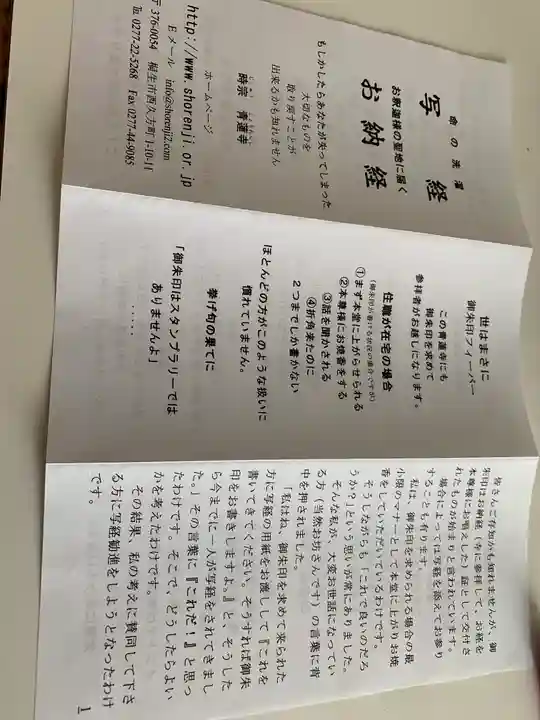 命の洗濯
写経
お釈迦様の聖地に届く
お納経
もしかしたらあなたが失ってしまった
大切なものを
取り戻すことが
出来るかも知れません
時宗 青蓮寺
ホームページ
http://www.shorenji.or.jp
Eメール info@shorenji2.com
〒376-0054 桐生市西久方町1-10-11
℡ 0277-22-5268 Fax 0277-44-9085
世はまさに
御朱印フィーバー
この青蓮寺にも
御朱印を求めて
参拝者がお越しになります。
住職が在宅の場合
(御朱印が書ける状況の場合ですが)
①まず本堂に上がらせられる
②本尊様にお焼香をする
③話を聞かされる
④折角来たのに
2つまでしか書かない
ほとんどの方がこのような扱いに
慣れていません。
挙げ句の果てに
「御朱印はスタンプラリーでは
ありませんよ」
・・・・・・
皆さんご存知かも知れませんが、御
朱印はお納経(寺に参拝して、お経を
本尊様にお唱えした)証として交付さ
れたものが始まりと言われています。
場合によっては写経を添えてお参り
することも有ります。
私は、御朱印を求められる場合の最
小限のマナーとして本堂に上がりお焼
香をしていただいているわけです。
そうしながらも「これで良いのだろ
うか?」という思いが常にありました。
そんな私が、大変お世話になってい
る方(当然お坊さんです)の言葉に背
中を押されました。
「私はね、御朱印を求めて来られた
方に写経の用紙をお渡しして『これを
書いてきてください。そうすれば御朱
印をお書きしますよ。』と、そうした
ら今までに一人が写経をされてきまし
た。」その言葉に『これだ!』と思っ
たわけです。そこで、どうしたらよい
かを考えたわけです。
その結果、私の考えに賛同して下さ
る方に写経勧進をしようとなったわけ
です。
1